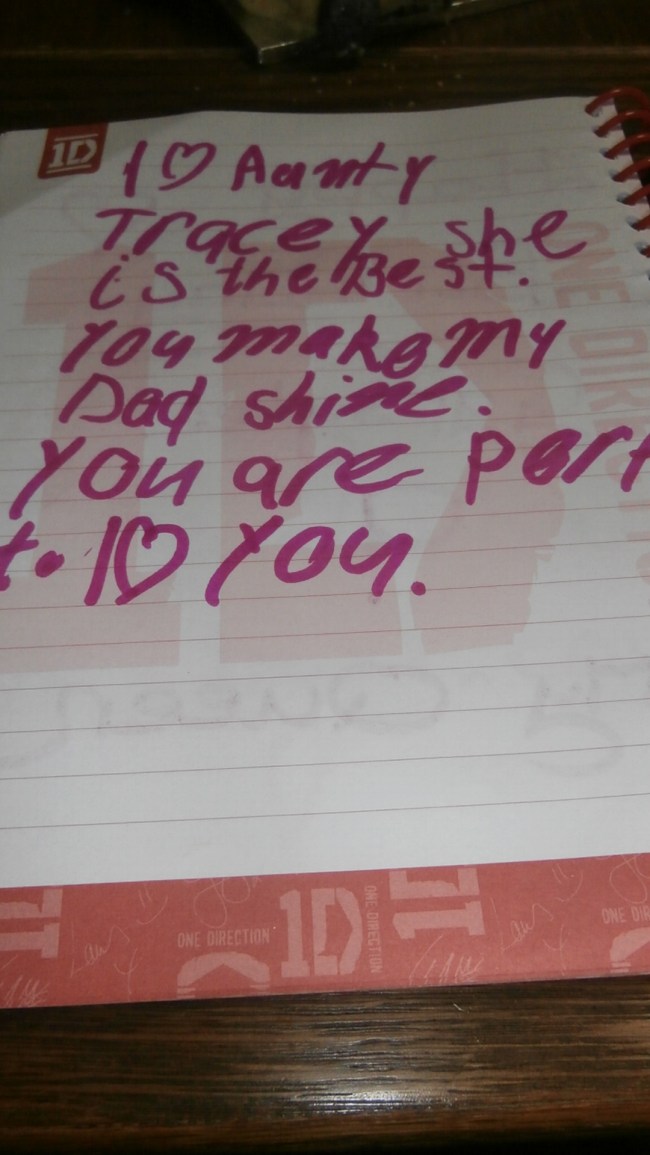 1D
I ♡ Aunty
Tracey she
is the Best.
You make my
Dad shine.
You are part
to. I ♡ you.
1D
ONE DIRECTION
ONE DIRECTION
1D
ONE DIRECTION
ONE DIR